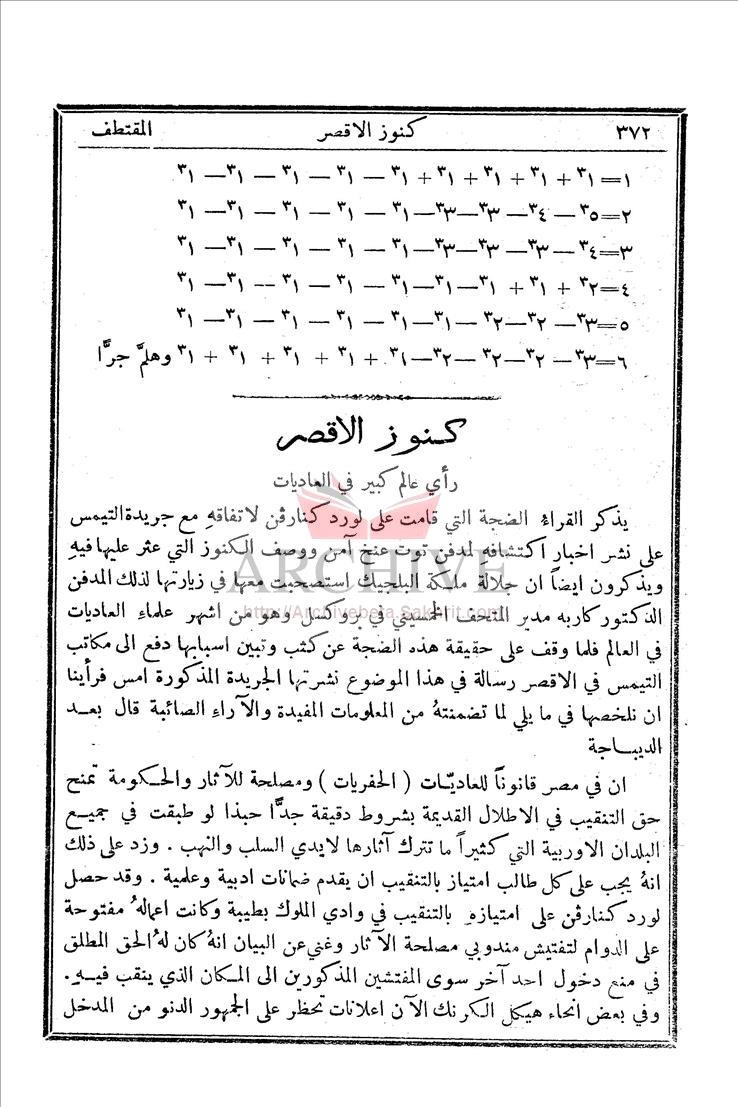 ٣٧٢ كنوز الاقصر المقتطف
١=١٣ + ١٣ + ١٣ + ١٣ — ١٣ — ١٣ — ١٣ — ١٣ — ١٣
٢=٥٣ — ٤٣ — ٣٣—٣٣—١٣ — ١٣ — ١٣ — ١٣ — ١٣
٣=٤٣ — ٣٣— ٣٣—٣٣—١٣ — ١٣ — ١٣ — ١٣ — ١٣
٤=٢٣ + ١٣ + ١٣ —١٣—١٣ — ١٣ — ١٣ — ١٣ — ١٣
٥=٣٣— ٢٣—٢٣ —١٣—١٣ — ١٣ — ١٣ — ١٣ — ١٣
٦=٣٣— ٢٣—٢٣ —٢٣—١٣ + ١٣ + ١٣ + ١٣ + ١٣ وهلمَّ جرًّا
كنوز الاقصر
رأي عالم كبير في العاديات
يذكر القراءُ الضجة التي قامت على لورد كنارڤن لاتفاقهِ مع جريدة التيمس
على نشر اخبار اكتشافه لمدفن توت عنخ آمن ووصف الكنوز التي عثر عليها فيهِ
ويذكرون ايضاً ان جلالة ملكة البلجيك استصحبت معها في زيارتها لذلك المدفن
الدكتور كاربه مدير المتحف الخمسيني في بروكسل وهو من اشهر علماءِ العاديات
في العالم فلما وقف على حقيقة هذه الضجة عن كثب وتبين اسبابها دفع الى مكاتب
التيمس في الاقصر رسالة في هذا الموضوع نشرتها الجريدة المذكورة امس فرأينا
ان نلخصها في ما يلي لما تضمنتهُ من المعلومات المفيدة والآراءِ الصائبة قال بعد
الديباجة
ان في مصر قانوناً للعاديّات ( الحفريات ) ومصلحة للآثار والحكومة تمنح
حق التنقيب في الاطلال القديمة بشروط دقيقة جدًّا حبذا لو طبقت في جميع
البلدان الاوربية التي كثيراً ما تترك آثارها لايدي السلب والنهب . وزد على ذلك
انهُ يجب على كل طالب امتياز بالتنقيب ان يقدم ضمانات ادبية وعلمية . وقد حصل
لورد كنارڤن على امتيازهِ بالتنقيب في وادي الملوك بطيبة وكانت اعمالهُ مفتوحة
على الدوام لتفتيش مندوبي مصلحة الآثار وغني عن البيان انهُ كان لهُ الحق المطلق
في منع دخول احد آخر سوى المفتشين المذكورين الى المكان الذي ينقب فيهِ.
وفي بعض انحاء هيكل الكرنك الآن اعلانات تحظر على الجمهور الدنو من المدخل
ARCHIVE
http://Archivebeta.Sakhrit.com